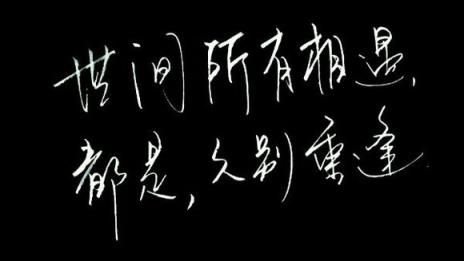 世间所有相遇,
都是,久别重逢